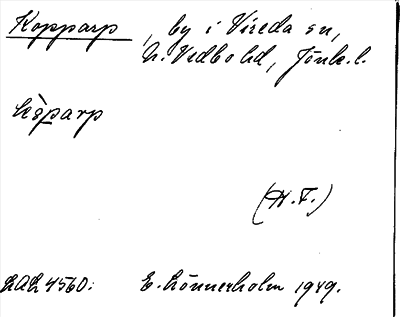 Kopparp, by i Vireda sn,
N. Vedbo hd, Jönk. l.
kåparp
(H.F.)
LAL 4560: E. Lönnerholm 1949.